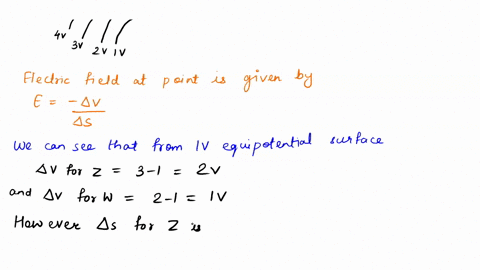 4v 3v 2v 1v
Electric field at point is given by
E = -ΔV
Δs
We can see that from 1V equipotential surface
ΔV for Z = 3-1 = 2V
and ΔV for W = 2-1 = 1V
However Δs for Z is